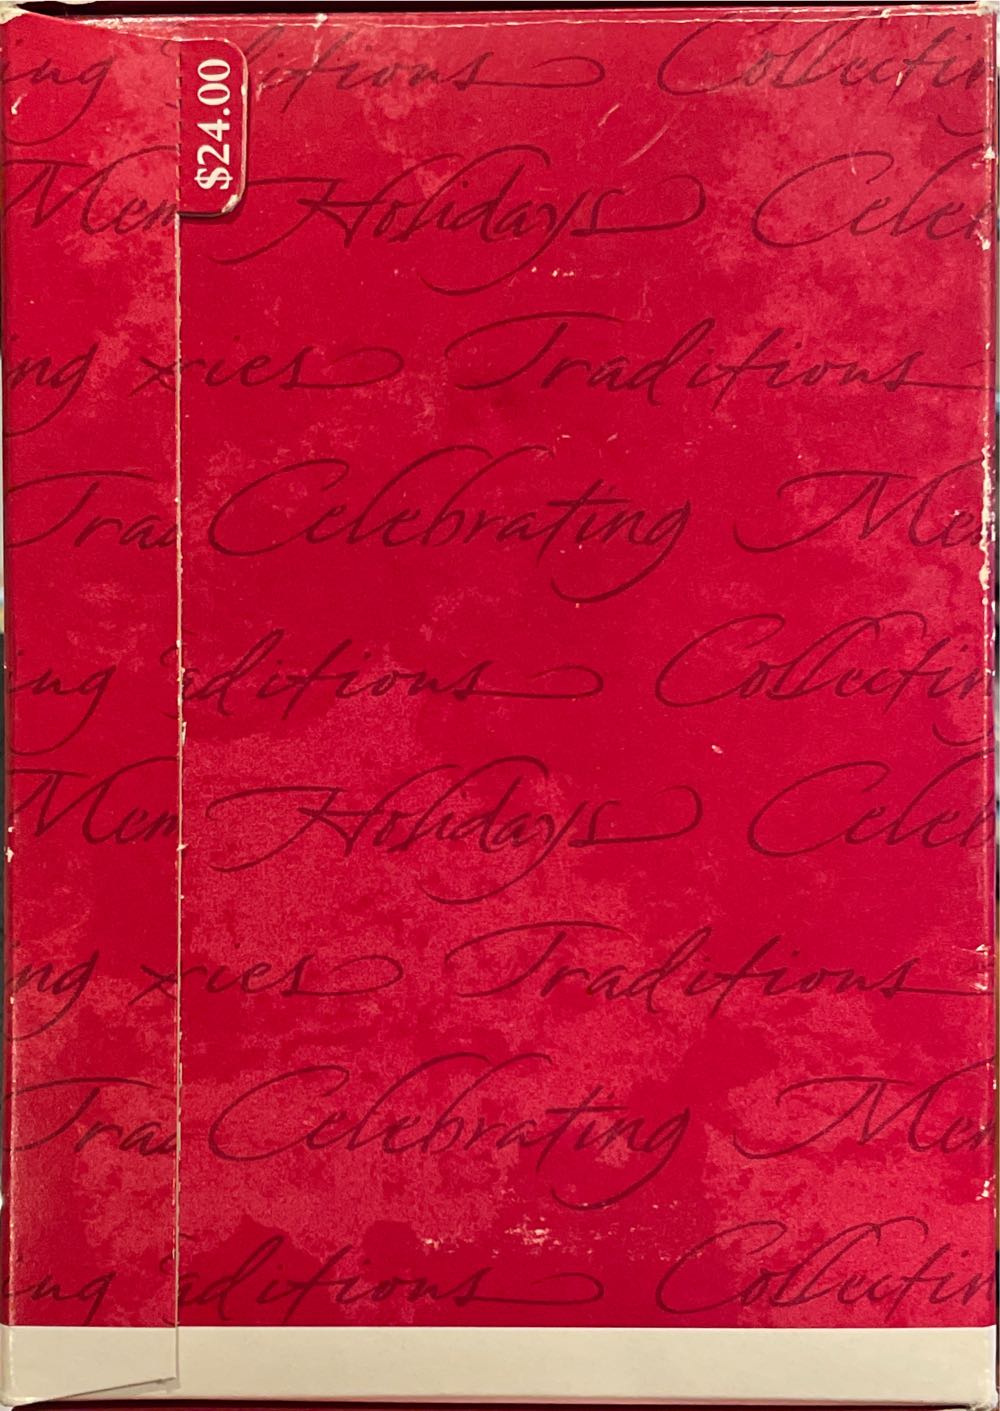 $24.00
ing ditions Collectin
Mem Holidays Celeb
ng ries Traditions
Trad Celebrating Mem
ing aditions Collectin
Mem Holidays Celeb
ng ries Traditions
Trad Celebrating Mem
ing aditions Collectin